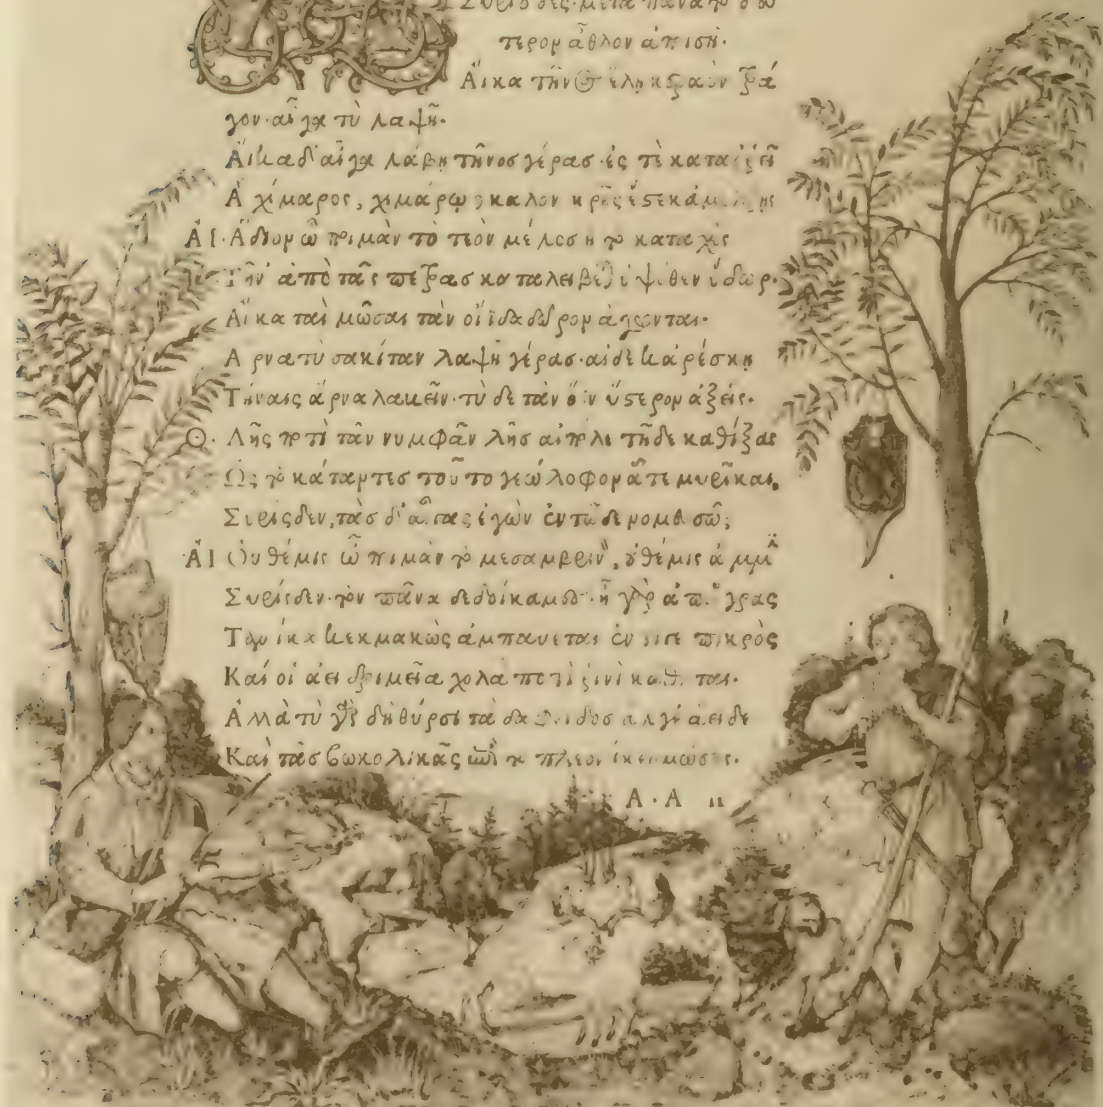 Συρίσδες· μετὰ πᾶνα τὸ δεύ
τερον ἆθλον ἀποισῇ·
Αἴκα τῆνος ἕλῃ κεραὸν τρά
γον· αἶγα τὺ λαψῇ·
Αἴκα δ' αἶγα λάβῃ τῆνος γέρας· ἐς τὲ καταρρεῖ
Ἁ χίμαρος, χιμάρῳ καλὸν κρῆς ἔστε κ' ἀμέλξῃς
ΑΙ· Ἅδιον ὦ ποιμὰν τὸ τεὸν μέλος ἢ τὸ καταχὲς
Τῆν' ἀπὸ τᾶς πέτρας καταλείβεται ὑψόθεν ὕδωρ·
Αἴκα ταὶ μῶσαι τὰν οἴιδα δῶρον ἄγωνται·
Ἄρνα τὺ σακίταν λαψῇ γέρας· αἰ δέ κ' ἀρέσκῃ
Τήναις ἄρνα λαβεῖν· τὺ δὲ τὰν ὄιν ὕστερον ἀξεῖς·
Θ· Λῇς ποτὶ τᾶν νυμφᾶν λῇς αἰπόλε τῇδε καθίξας
Ὡς τὸ κάταντες τοῦτο γεώλοφον ᾇτε μυρῖκαι,
Συρίσδεν, τὰς δ' αἶγας ἐγὼν ἐν τῷδε νομευσῶ;
ΑΙ Οὐ θέμις ὦ ποιμὰν τὸ μεσαμβρινὸν, οὐ θέμις ἄμμιν
Συρίσδεν· τὸν πᾶνα δεδοίκαμες· ἦ γὰρ ἀπ' ἄγρας
Τανίκα κεκμακὼς ἀμπαύεται ἐντί γε πικρὸς
Καί οἱ ἀεὶ δριμεῖα χολὰ ποτὶ ῥινὶ κάθηται·
Ἀλλὰ τὺ γὰρ δὴ θύρσι τὰ δάφνιδος ἄλγε' ἄειδε
Καὶ τᾶς βωκολικᾶς ἐπὶ τὸ πλέον ἵκεο μώσας·
Α · Α